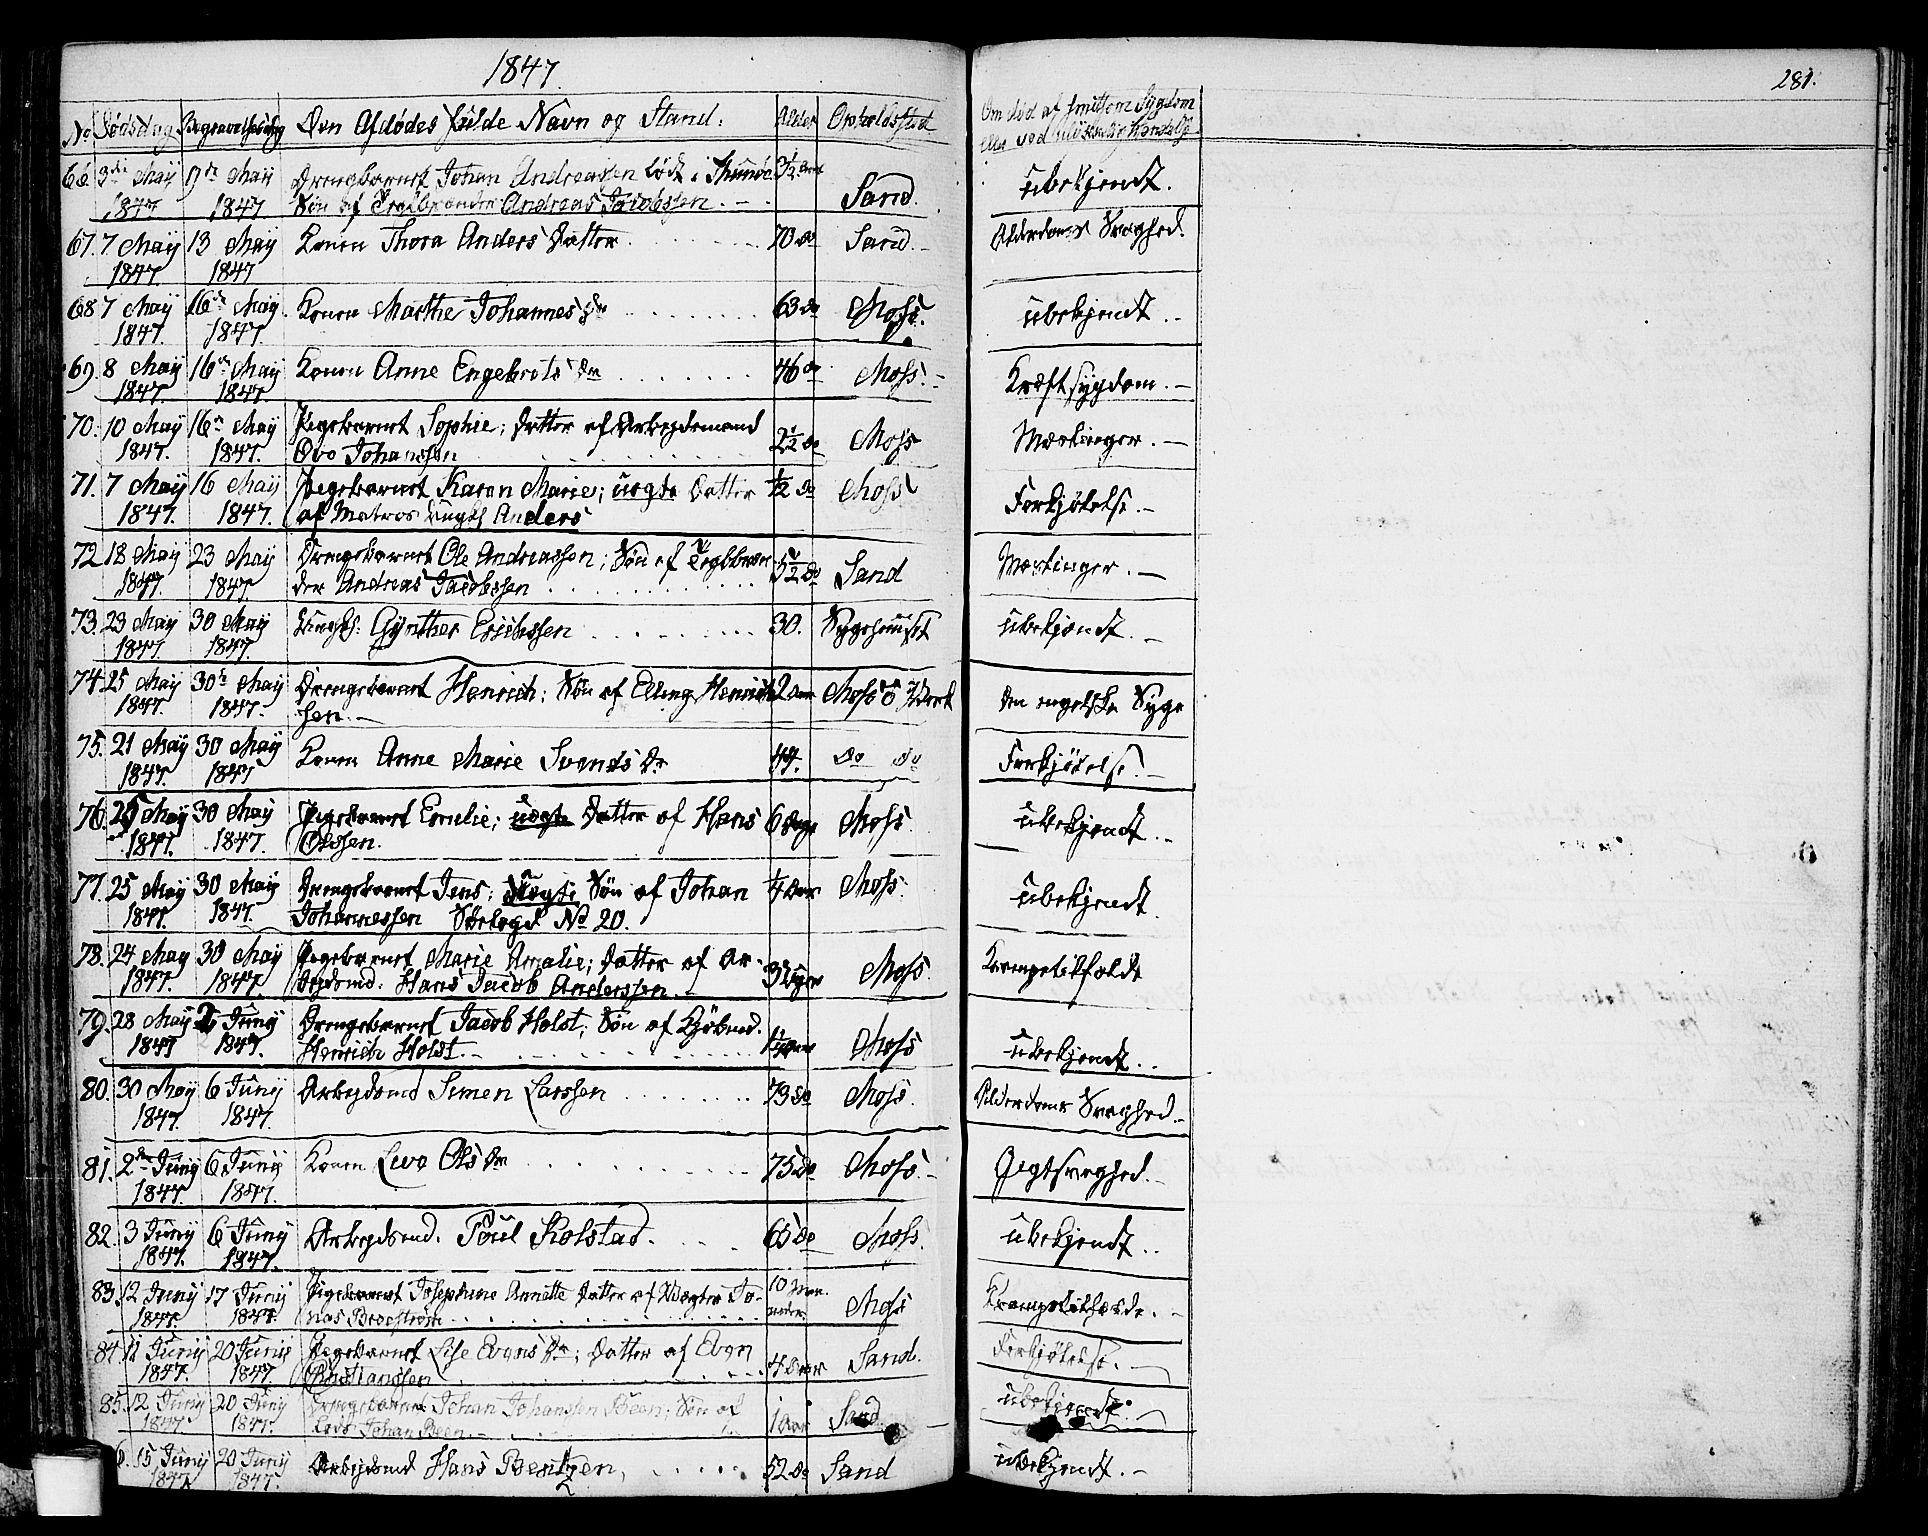 1847.
281.
No Dødsdag Begravelsesdag Den Afdødes fulde Navn og Stand. Alder Opholdssted Om død af smitsom Sygdom
eller ved ulykkelig Hændelse
66 3die Maij 9de Maij Drengebarnet Johan Andreassen født i 3½ Aar Sand. ubekjendt.
1847 1847 Søn af Teglbrænder Andreas Jacobssen. -
67. 7 Maij 13 Maij Konen Thora Anders Datter 70 do Sand. Alderdoms Svaghed.
1847 1847
68 7 Maij 16de Maij Konen Marthe Johannes Dr 63 do Moss. ubekjendt.
1847. 1847.
69. 8 Maij 16de Maij Konen Anne Engebrets Dr 46 do Moss. Kræftsygdom. -
1847. 1847.
70. 10 Maij 16de Maij Pigebarnet Sophie; Datter af Arbejdsmand 2½ do Moss Mæslinger. -
1847. 1847. Ove Johanssen
71. 7 Maij 16 Maij Pigebarnet Karen Marie; uægte Datter ½ do Moss Forkjølelse. -
1847. 1847. af Matros Anders
72 18 Maij 23 Maij Drengebarnet Ole Andreassen; Søn af Teglbræn- 5½ do Sand Mæslinger. -
1847. 1847. der Andreas Jacobssen
73. 23 Maij 30 Maij Ungk. Gynther Erichssen 30. Sygehuuset ubekjendt. -
1847. 1847.
74. 25 Maij 30te Maij Drengebarnet Henrich; Søn af Elling Henrich- 2 Aar Moss Værk den engelske Syge
1847. 1847. sen. -
75. 21 Maij 30 Maij Konen Anne Marie Svends Dr 44. do do Forkjølelse. -
1847. 1847
76. 25 Maij 30 Maij Pigebarnet Emelie; uægte Datter af Hans 6 Dage Moss. ubekjendt. -
1847. 1847. Olssen.
77. 25 Maij 30 Maij Drengebarnet Jens; uægte Søn af Johan ¼ Aar Moss. ubekjendt.
1847. 1847. Johannessen No 20.
78. 24 Maij 30 Maij Pigebarnet Marie Amalie; Datter af Ar- 3 Uger Moss. Krampetilfælde
1847. 1847. bejdsmd. Hans Jacob Anderssen. -
79. 28 Maij 2 Junij Drengebarnet Jacob Holst; Søn af Kjøbmd. Moss ubekjendt.
1847 1847. Henrich Holst. -
80. 30 Maij 6 Junij Arbejdsmd Simen Larssen 73 do Moss. Alderdoms Svaghed. -
1847. 1847.
81. 2den Junij 6 Junij Konen Live Ols Dr 75 do Moss. - Gegtsvaghed. -
1847. 1847.
82. 3 Junij 6 Junij Arbejdsmd. Poul Kolstad. 65 do Moss. ubekjendt.
1847. 1847.
83. 12 Junij 17 Junij Pigebarnet Josephine Annette Datter af Vægter Jo- 10 Maa- Moss Krampetilfælde. -
1847. 1847. nas neder
84 11 Junij 20 Junij Pigebarnet Lise Evens Dr; Datter af Even 4 Aar Sand. Forkjølelse. -
1847. 1847. Christianssen
85. 12 Junij 20 Junij Drengebarnet Johan Johanssen Been; Søn af 1 Aar Sand ubekjendt.
1847. 1847. Lods Johan Been. -
6. 15 Junij 20 Junij Arbejdsmd Hans Bentzen, 52 do Sand ubekjendt. -
1847 1847.